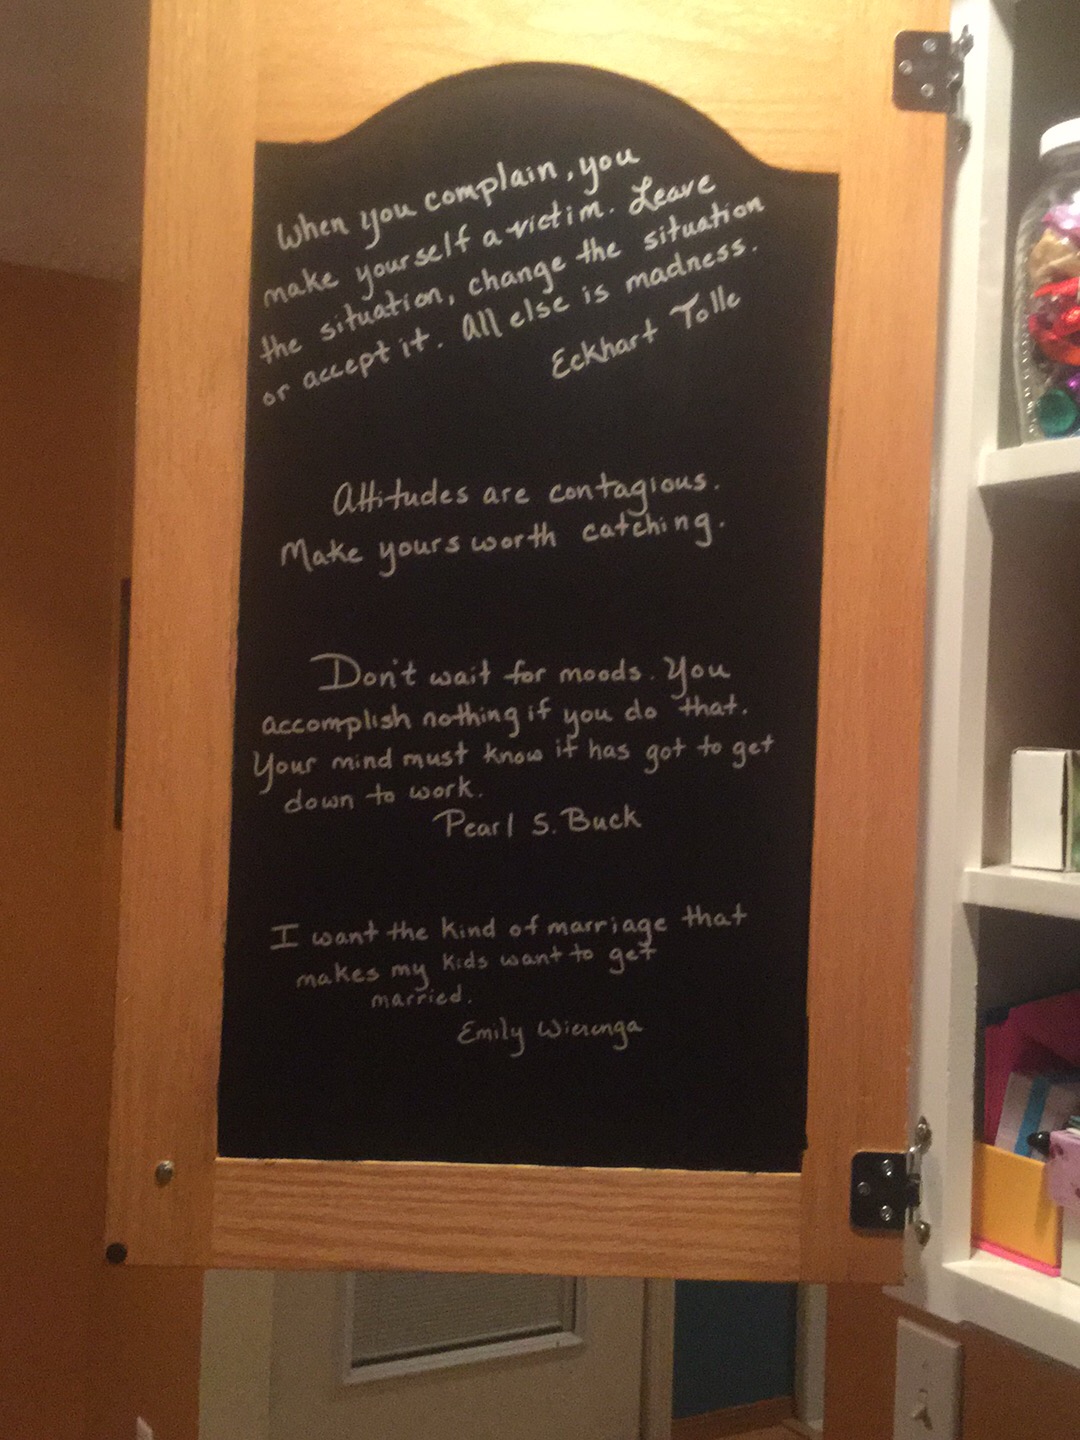 When you complain, you
make yourself a victim. Leave
the situation, change the situation
or accept it. All else is madness.
Eckhart Tolle
Attitudes are contagious.
Make yours worth catching.
Don't wait for moods. You
accomplish nothing if you do that.
Your mind must know it has got to get
down to work.
Pearl S. Buck
I want the kind of marriage that
makes my kids want to get
married.
Emily Wierenga